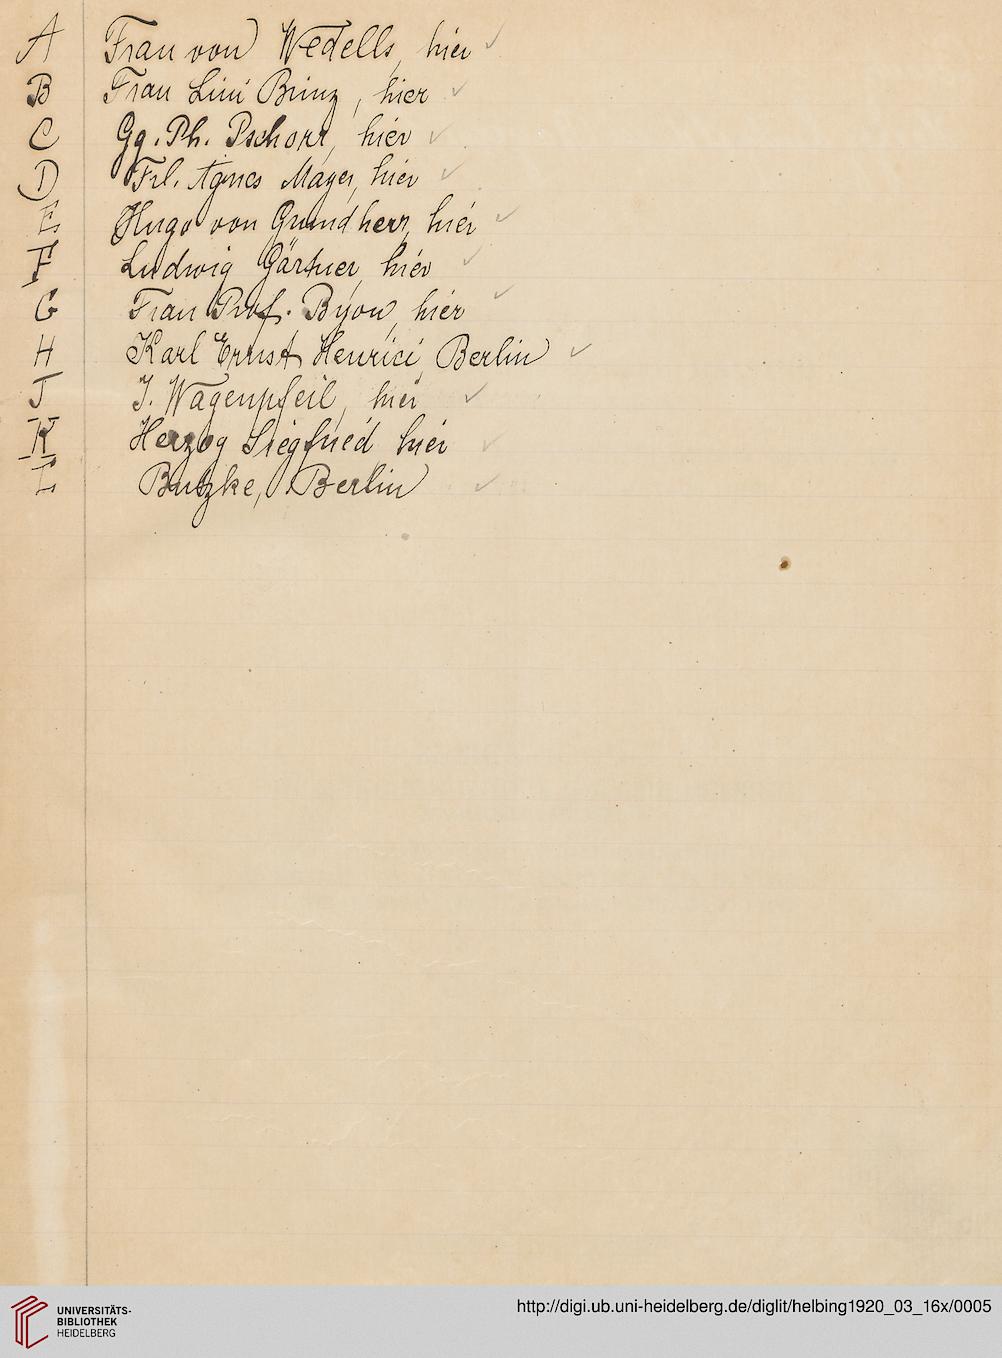 A Frau von Wedells, hier ✓
B Frau Lini Brinz, hier ✓
C Gg. Ph. Pschorr, hier ✓
D Frl. Agnes Mayer, hier ✓
E Hugo von Grundherr, hier ✓
F Ludwig Gärtner, hier ✓
G Frau Prof. Byon, hier ✓
H Karl Ernst Henrici, Berlin ✓
J J. Wagenpfeil, hier ✓
K Herzog Siegfried hier ✓
L Butzke, Berlin ✓
UNIVERSITÄTS-
BIBLIOTHEK
HEIDELBERG
http://digi.ub.uni-heidelberg.de/diglit/helbing1920_03_16x/0005